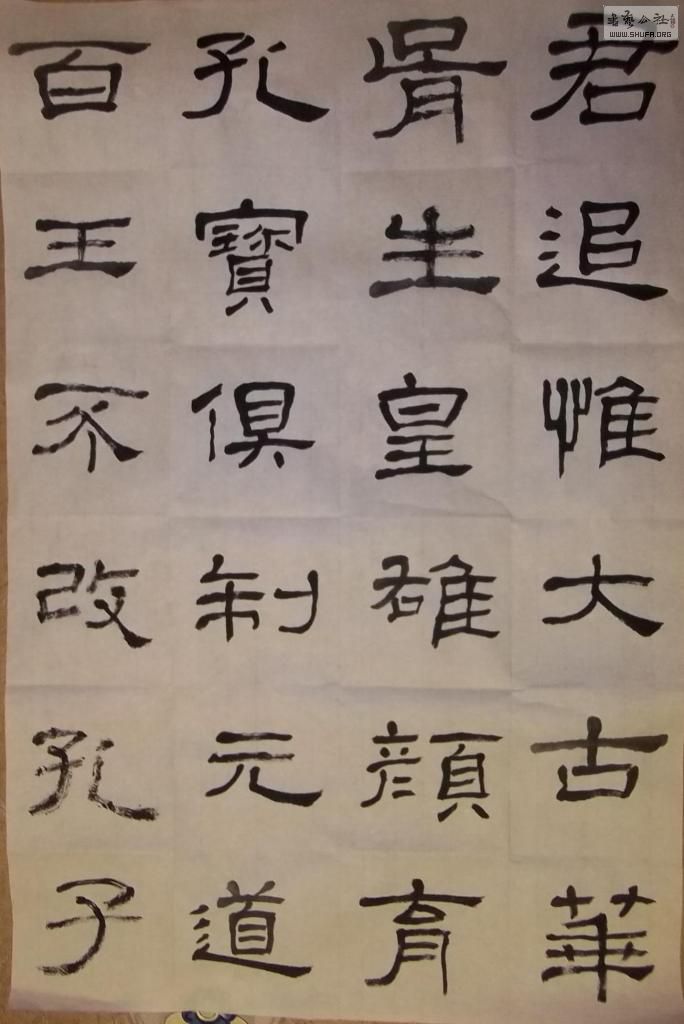 君追惟大古華
胥生皇雄顏育
孔寶俱制元道
百王不改孔子
書藝公社
WWW.SHUFA.ORG